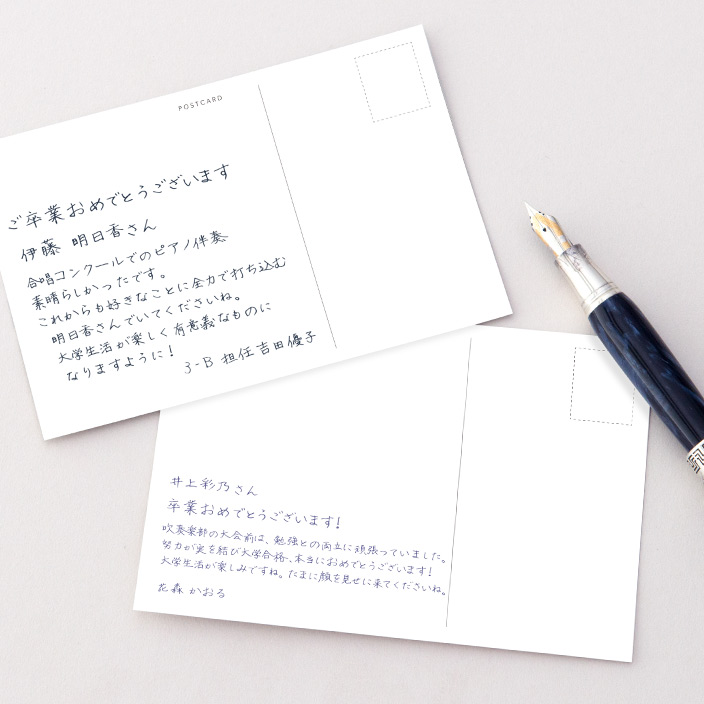 POSTCARD
ご卒業おめでとうございます
伊藤 明日香さん
合唱コンクールでのピアノ伴奏
素晴らしかったです。
これからも好きなことに全力で打ち込む
明日香さんでいてくださいね。
大学生活が楽しく有意義なものに
なりますように!
3-B 担任 吉田優子
井上彩乃さん
卒業おめでとうございます!
吹奏楽部の大会前は、勉強との両立に頑張っていました。
努力が実を結び大学合格、本当におめでとうございます!
大学生活が楽しみですね。たまに顔を見せに来てくださいね。
花森かおる